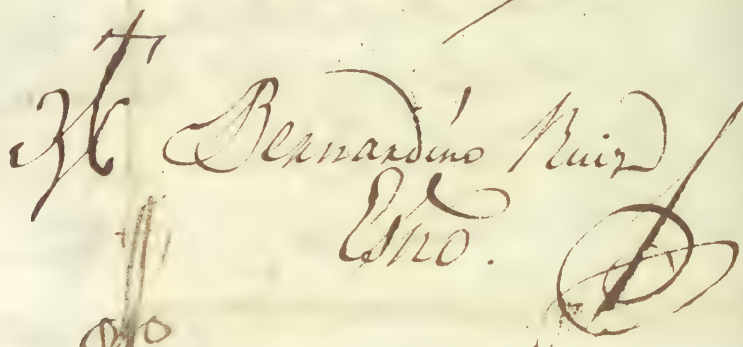 Bernardino Ruiz
Esno.